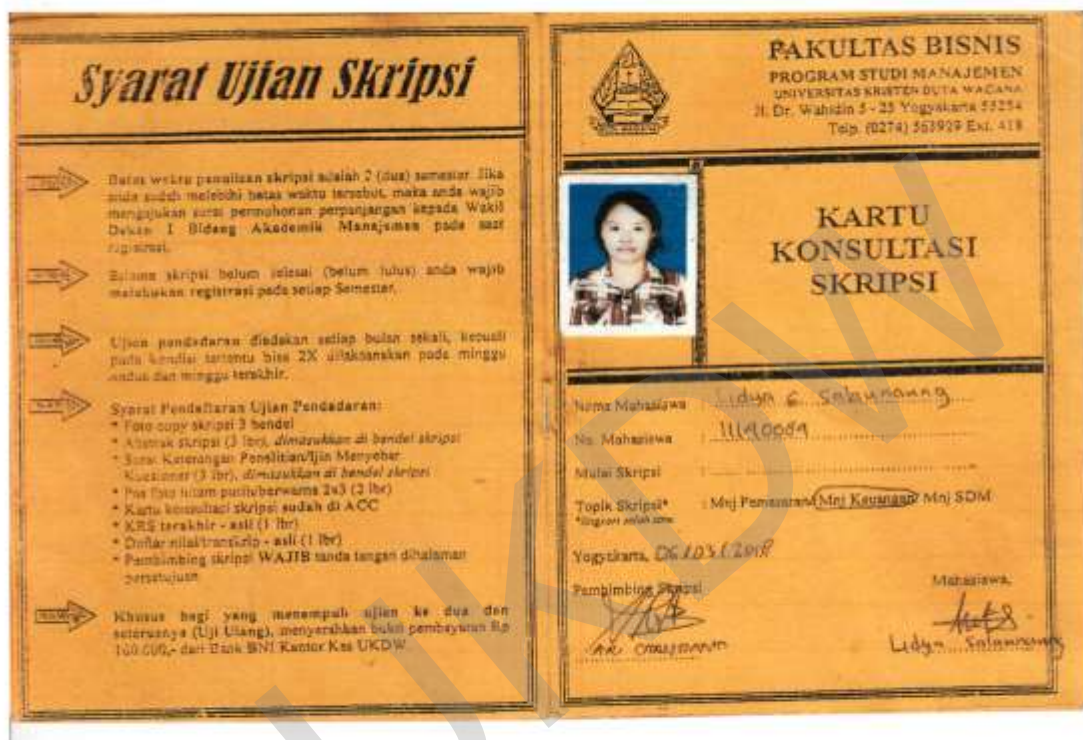 Syarat Ujian Skripsi
Batas waktu penulisan skripsi adalah 2 (dua) semester. Jika
anda sudah melebihi batas waktu tersebut, maka anda wajib
mengajukan surat permohonan perpanjangan kepada Wakil
Dekan I Bidang Akademik Manajemen pada saat
registrasi.
Selama skripsi belum selesai (belum lulus) anda wajib
melakukan registrasi pada setiap Semester.
Ujian pendadaran diadakan setiap bulan sekali, kecuali
pada kondisi tertentu bisa 2X dilaksanakan pada minggu
kedua dan minggu terakhir.
Syarat Pendaftaran Ujian Pendadaran:
* Foto copy skripsi 3 bendel
* Abstrak skripsi (3 lbr), dimasukkan di bendel skripsi
* Surat Keterangan Penelitian/Ijin Menyebar
Kuesioner (3 lbr), dimasukkan di bendel skripsi
* Pas foto hitam putih/berwarna 2x3 (2 lbr)
* Kartu konsultasi skripsi sudah di ACC
* KRS terakhir - asli (1 lbr)
* Daftar nilai/transkrip - asli (1 lbr)
* Pembimbing skripsi WAJIB tanda tangan dihalaman
persetujuan
Khusus bagi yang menempuh ujian ke dua dan
seterusnya (Uji Ulang), menyerahkan bukti pembayaran Rp
100.000,- dari Bank BNI Kantor Kas UKDW
FAKULTAS BISNIS
PROGRAM STUDI MANAJEMEN
UNIVERSITAS KRISTEN DUTA WACANA
Jl. Dr. Wahidin 5 - 25 Yogyakarta 55254
Telp. (0274) 563929 Ext. 418
KARTU
KONSULTASI
SKRIPSI
Nama Mahasiswa : Lidya G. Salaunaung
No. Mahasiswa : 11140089
Mulai Skripsi :
Topik Skripsi* : Mnj Pemasaran/Mnj Keuangan/Mnj SDM
Yogyakarta, 06/03/2018
Pembimbing Skripsi
Mahasiswa,
Lidya Salaunaung
UKDW